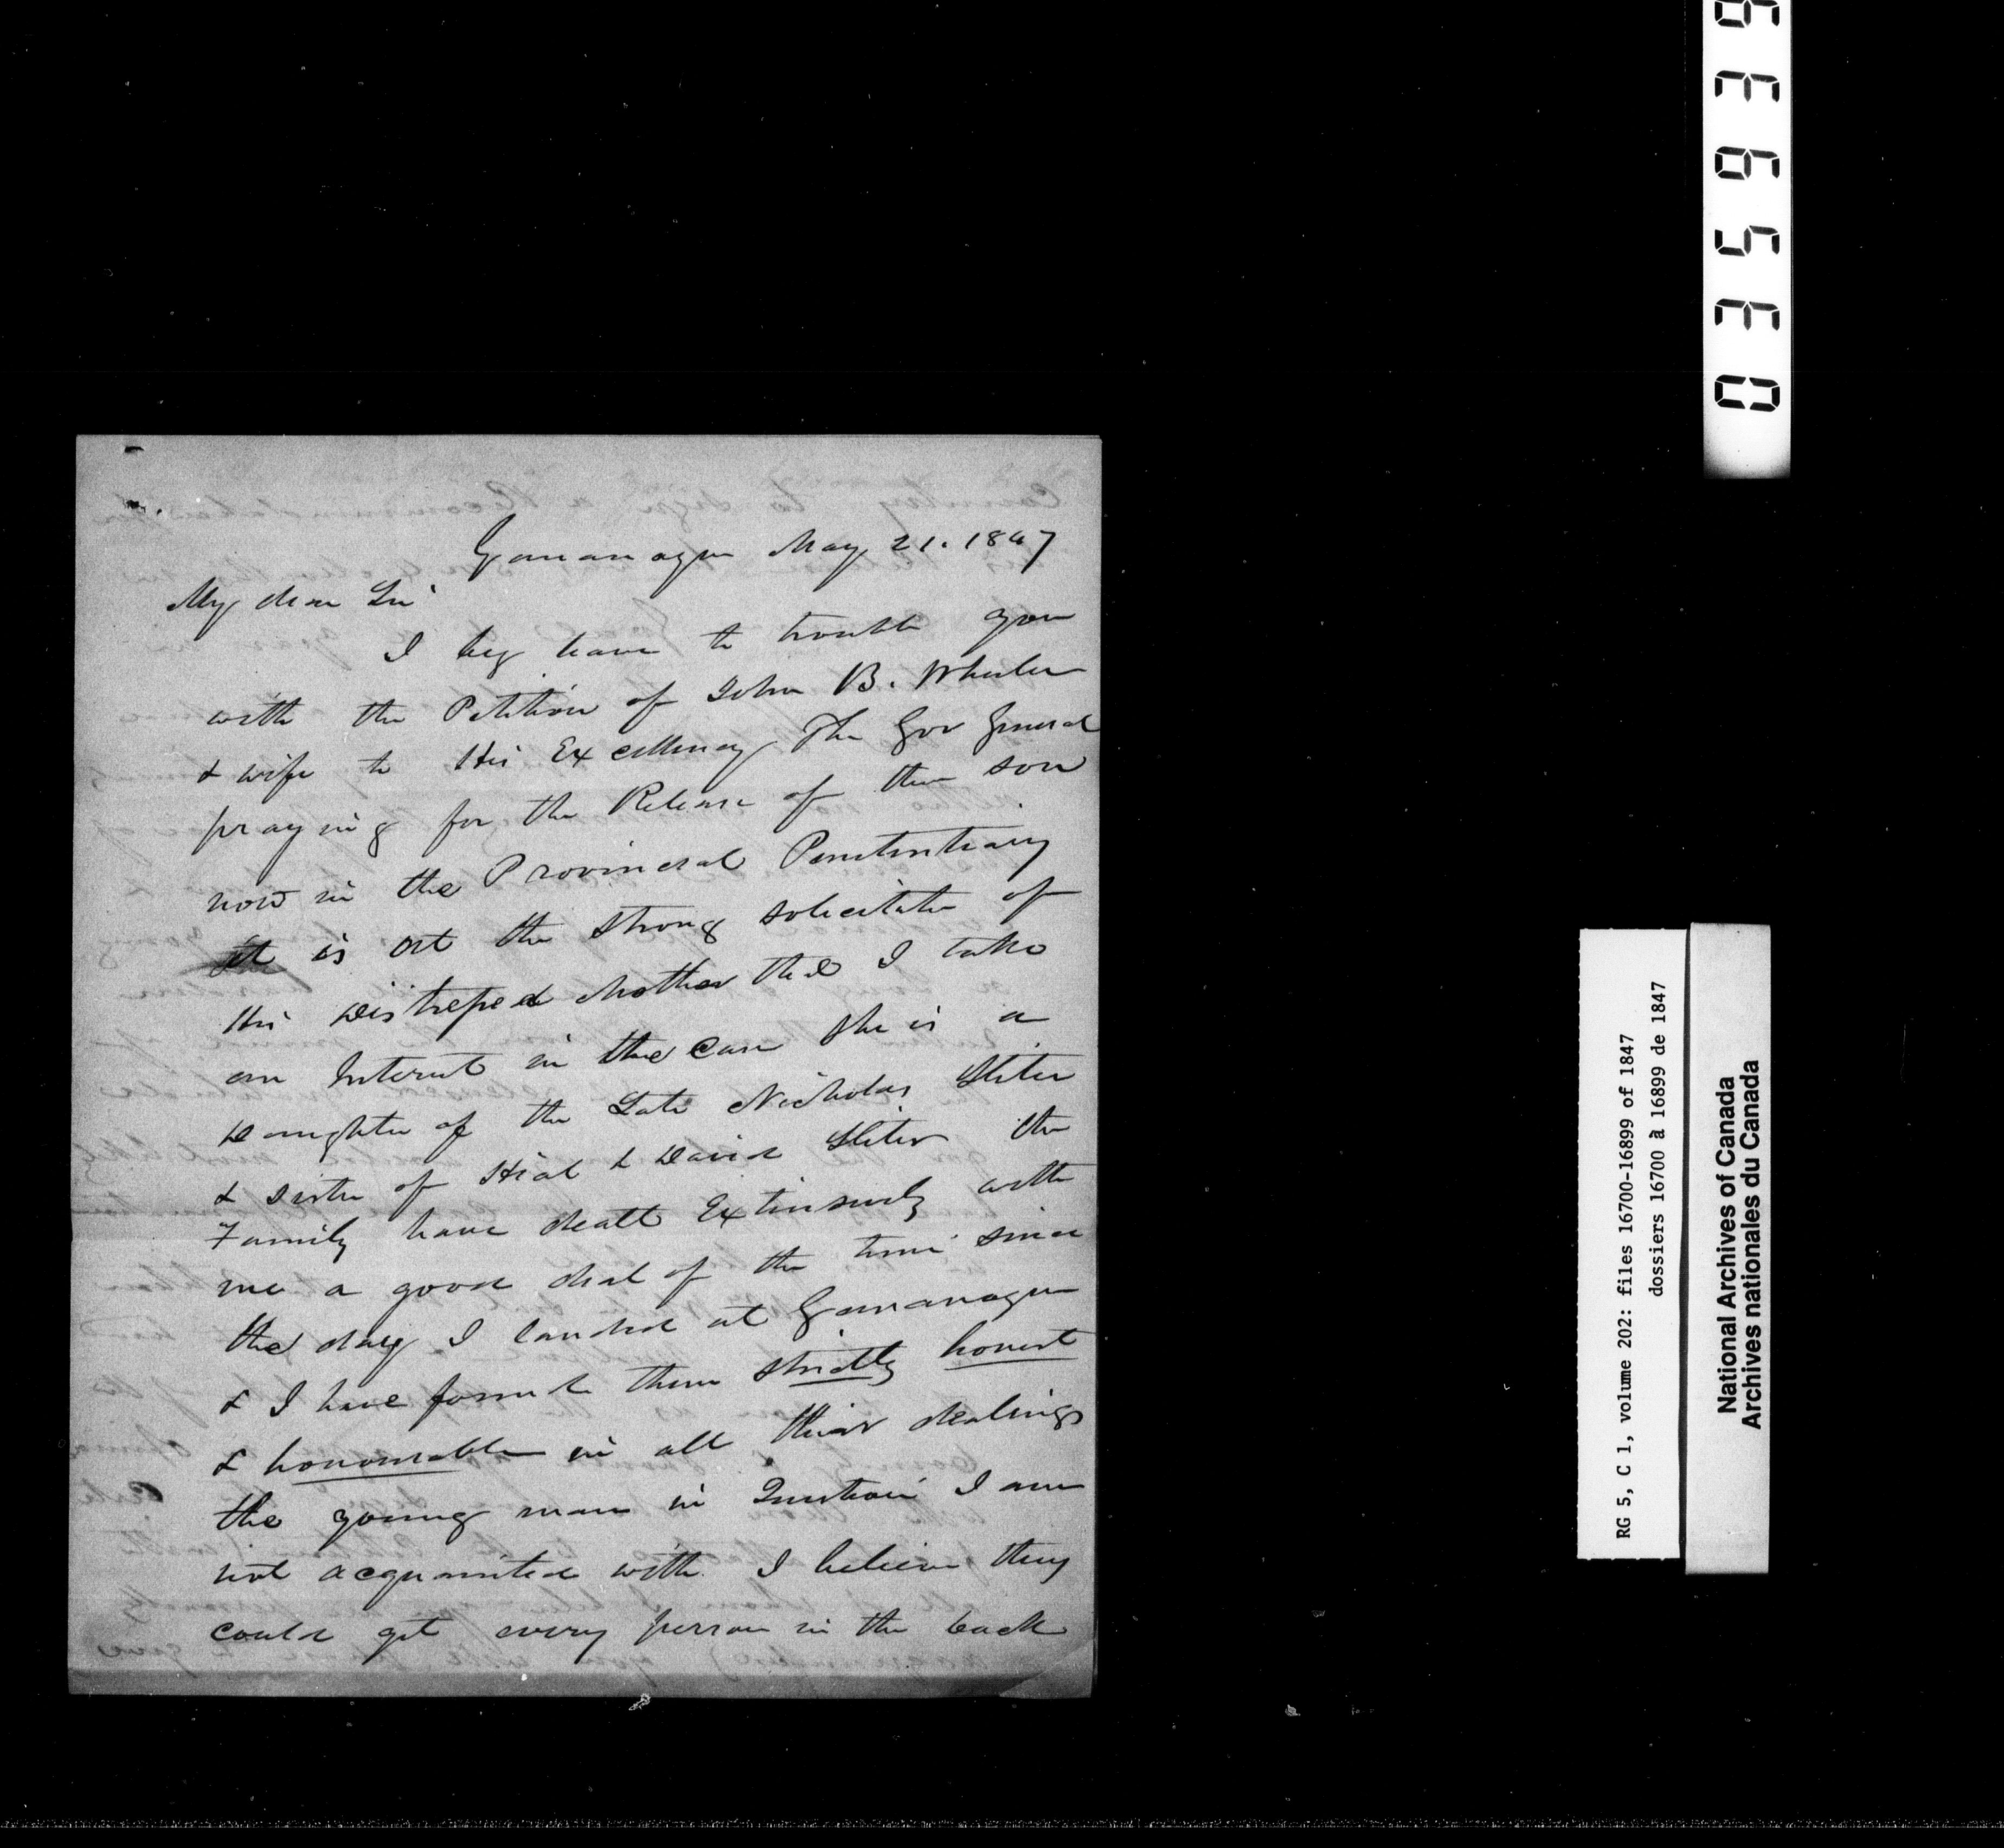 Gananoque May 21. 1847
My dear Sir
I beg leave to trouble you
with the Petition of John B. Wheeler
& wife to His Excellency The Gov General
praying for the Release of their son
now in the Provincial Penitentiary
it is at the strong solicitatn of
His Distressed Mother that I take
an Interest in the Case She is a
Daughter of the Late Nicholas
& sister of & David the
Family have dealt Extensively with
me a good deal of the time since
the day I landed at Gananoque
& I have found them strictly honest
& honourable in all their dealings
the young man in Question I am
not acquainted with I believe they
could get every person in the back
RG 5, C 1, volume 202: files 16700-16899 of 1847
dossiers 16700 à 16899 de 1847
National Archives of Canada
Archives nationales du Canada